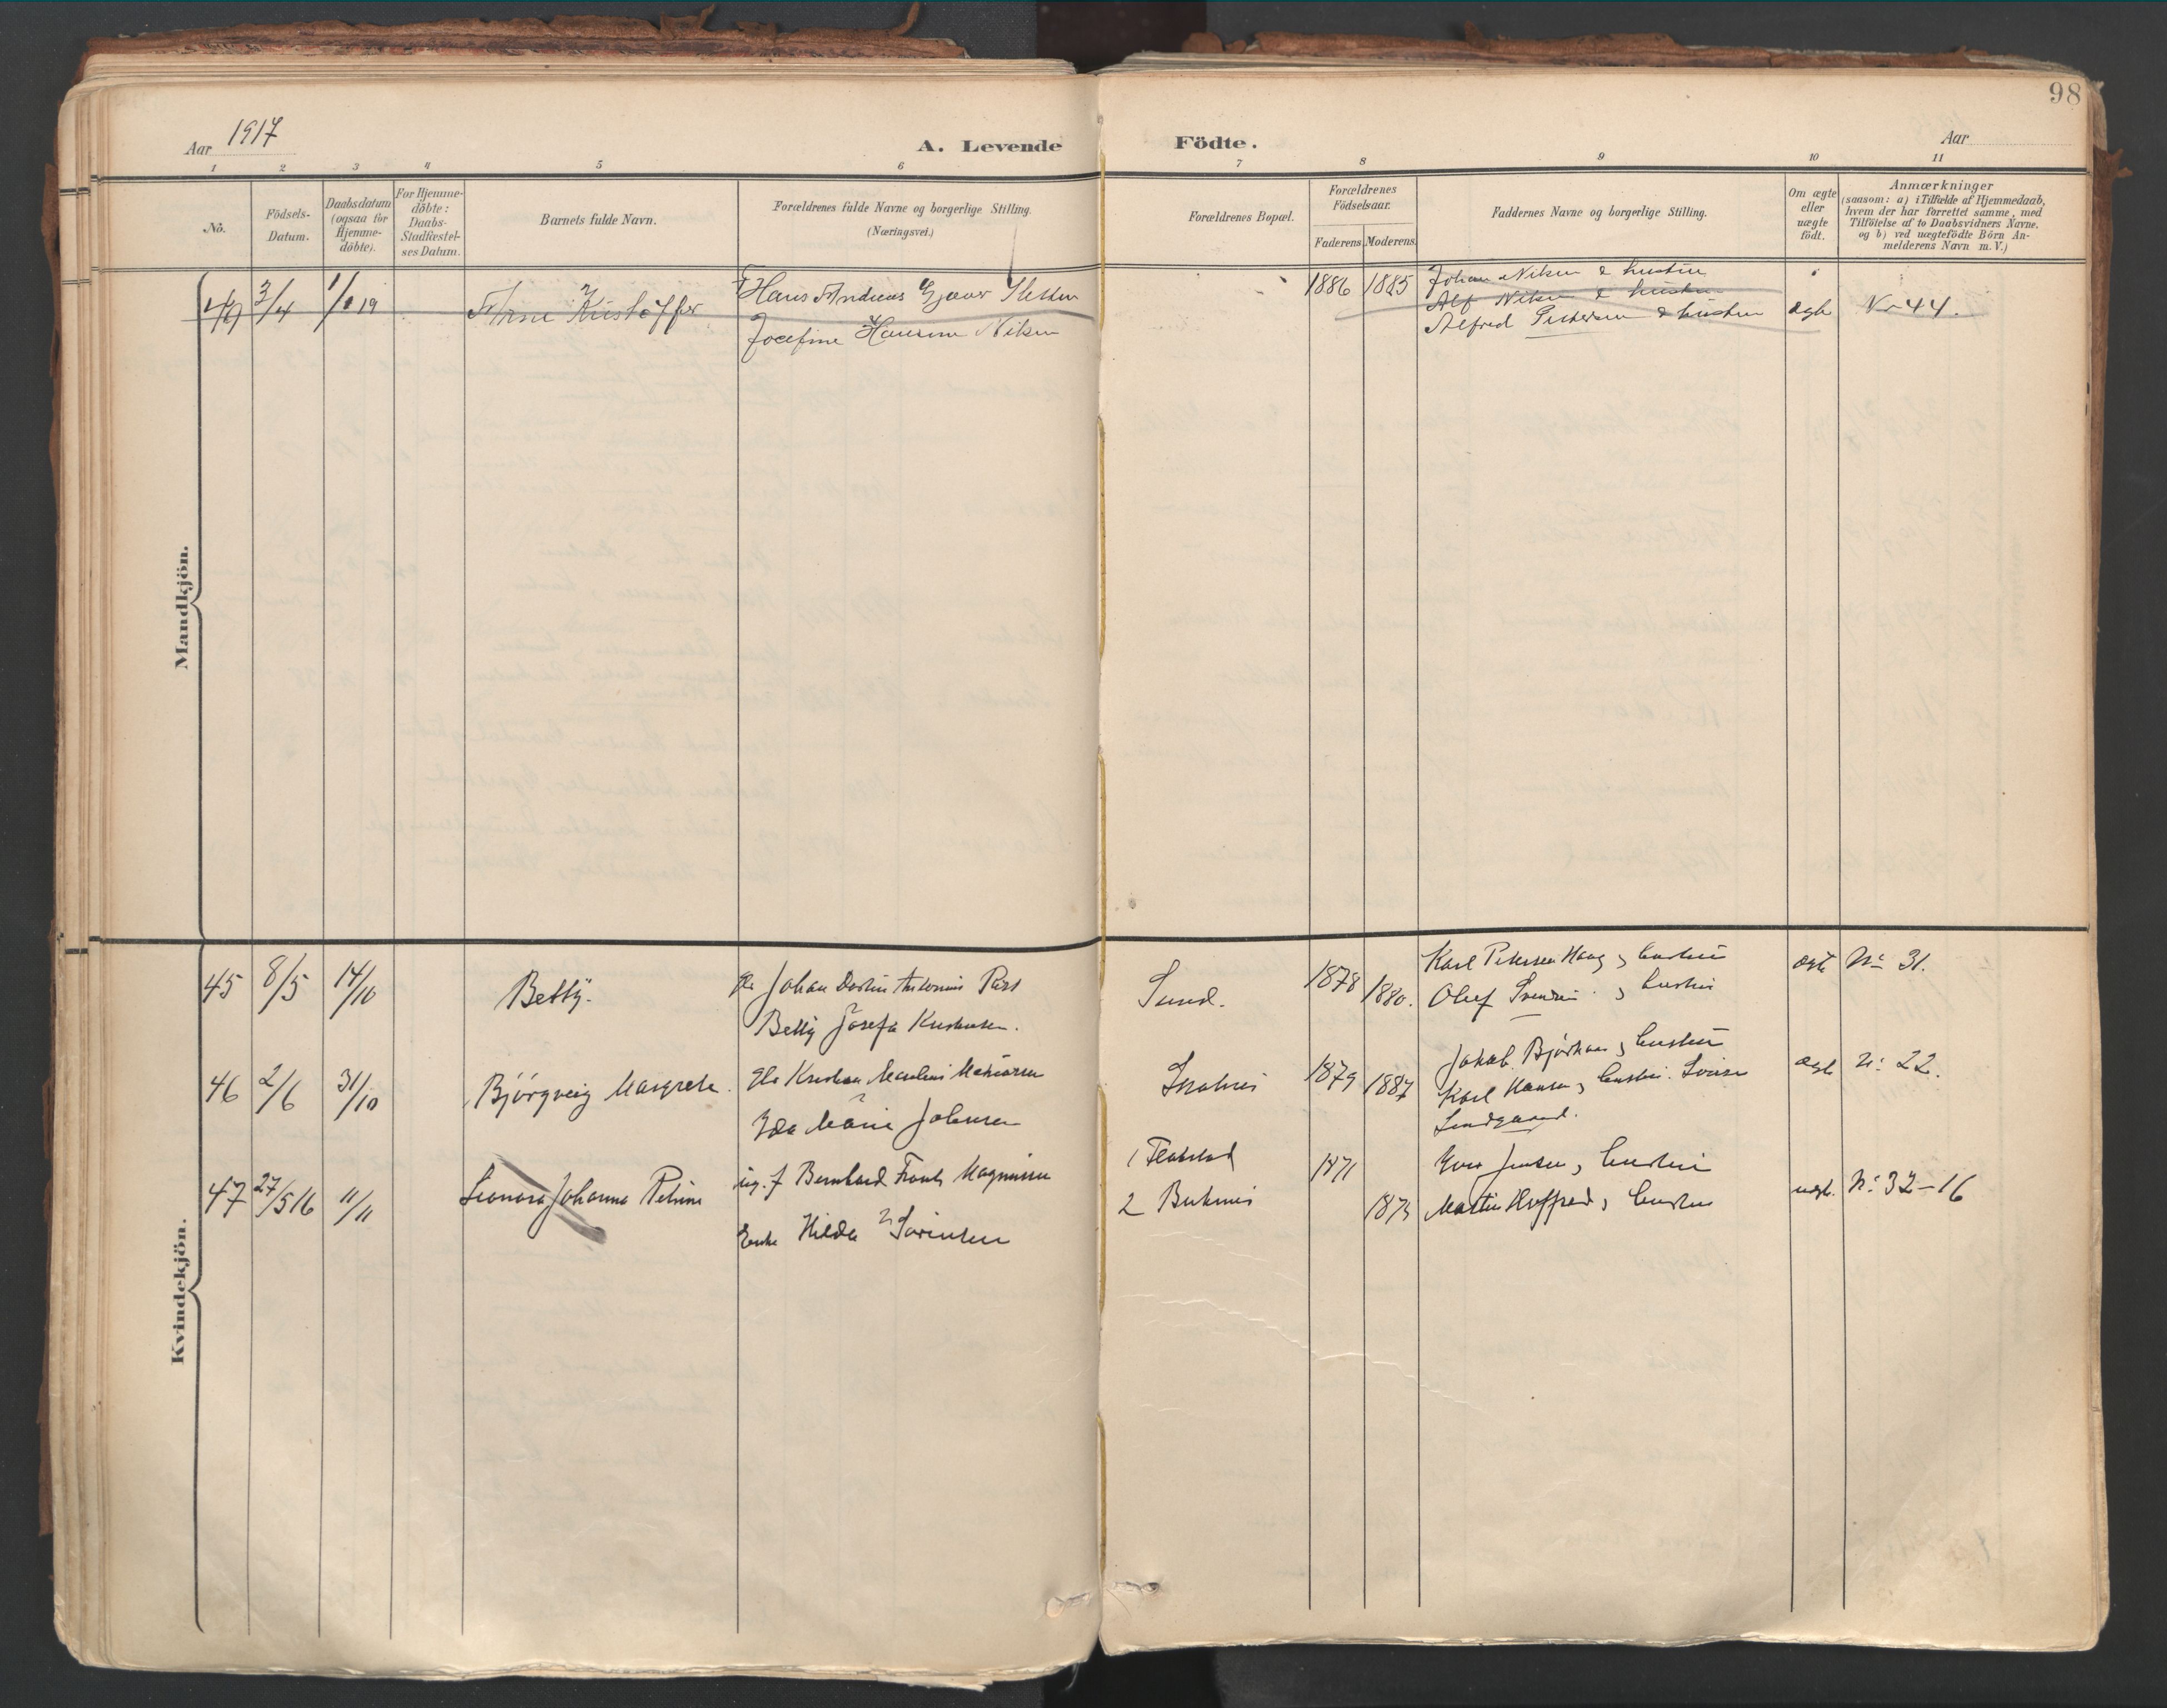 98
Aar 1917
A. Levende Födte.
Aar
1 2 3 4 5 6 7 8 9 10 11
No.
Födsels-
Datum.
Daabsdatum
(ogsaa for
Hjemme-
döbte).
For Hjemme-
döbte:
Daabs-
Stadfæstel-
ses Datum.
Barnets fulde Navn.
Forældrenes fulde Navne og borgerlige Stilling.
(Næringsvei.)
Forældrenes Bopæl.
Forældrenes
Födselsaar.
Faderens. Moderens.
Faddernes Navne og borgerlige Stilling.
Om ægte
eller
uægte
födt.
Anmærkninger
(saasom: a) i Tilfælde af Hjemmedaab,
hvem der har forrettet samme, med
Tilföielse af to Daabsvidners Navne.
og b) ved uægtefödte Börn An-
melderens Navn m. V.)
Mandkjön.
49 3/4 1/8 19 Arne Kristoffer
Hans Andreas Gjæver
Josefine Hansine Nilsen
1886 1885
Johan Nilsen & hustru
Alf Nilsen & hustru
Alfred Pettersen & hustru
ægte Nr 44.
Kvindekjön.
45 8/5 14/10 Betty.
Johan Antonius
Betty Josefa Kristensen.
Sund.
1878 1880.
Karl Petersen Haug, hustru
Oluf Svendsen, hustru
ægte No 31.
46 2/6 31/10 Björgveig Margrete
Kristian
Ida Marie Johnsen
1879 1887
Jakob, hustru
Karl Hansen, hustru. Lovise
Lundgaard.
ægte No 22.
47 27/5 16 11/11 Leonora Johanna Petrine
ug. f Bernhard Frants Magnussen
Enke Hilda Sörensen
1 Flakstad
2 Buknes
1871
1873
Jensen, hustru
Martin, hustru
uægte. No 32-16